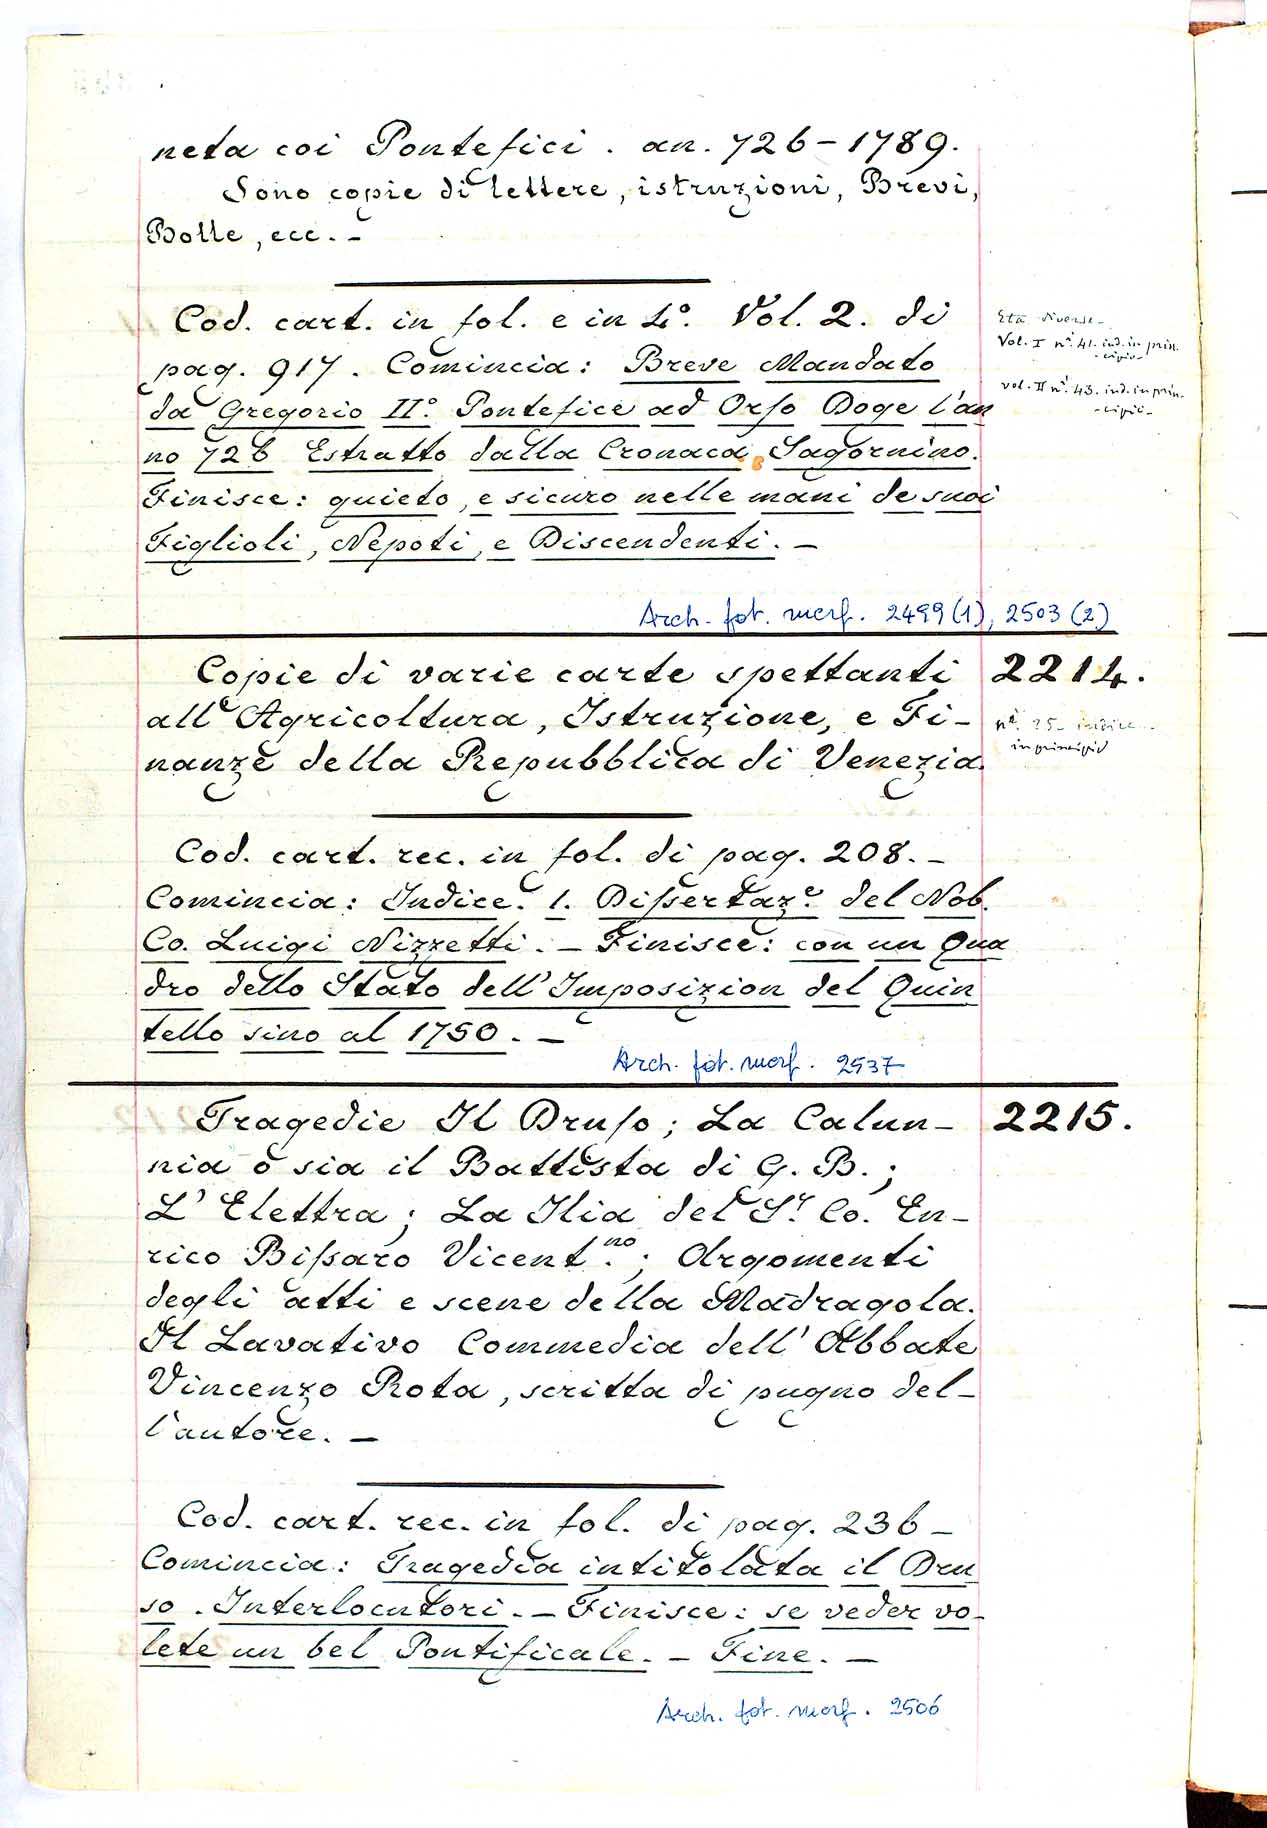 neta coi Pontefici. an. 726-1789.
Sono copie di lettere, istruzioni, Brevi,
Bolle, ecc. -
Cod. cart. in fol. e in 4º. Vol. 2. di
pag. 917. Comincia: Breve Mandato
da Gregorio IIº. Pontefice ad Orso Doge l'an
no 726 Estratto dalla Cronaca Sagornino.
Finisce: quieto, e sicuro nelle mani de suoi
Figlioli, Nepoti, e Discendenti. -
Età diverse -
Vol. I nⁱ. 41. ind. in prin-
cipio -
vol. II nⁱ. 43. ind. in prin-
cipio -
Arch. fot. marf. 2499 (1), 2503 (2)
Copie di varie carte spettanti
all'Agricoltura, Istruzione, e Fi-
nanze della Repubblica di Venezia.
2214.
nⁱ. 25 - indice -
in principio
Cod. cart. rec. in fol. di pag. 208. -
Comincia: Indice. 1. Dißertazᵉ. del Nob.
Co. Luigi Nizzetti. - Finisce: con un Qua
dro dello Stato dell'Imposizion del Quin
tello sino al 1750. -
Arch. fot. marf. 2537
Tragedie Il Druso; La Calun-
nia o sia il Battista di G. B.;
L'Elettra; La Ilia del Sʳ. Co. En-
rico Bißaro Vicent.ⁿᵒ; Argomenti
degli atti e scene della Mādragola.
Il Lavativo Commedia dell'Abbate
Vincenzo Rota, scritta di pugno del-
l'autore. -
2215.
Cod. cart. rec. in fol. di pag. 236 -
Comincia: Tragedia intitolata il Dru
so. Interlocutori. - Finisce: se veder vo-
lete un bel Pontificale. - Fine. -
Arch. fot. marf. 2506